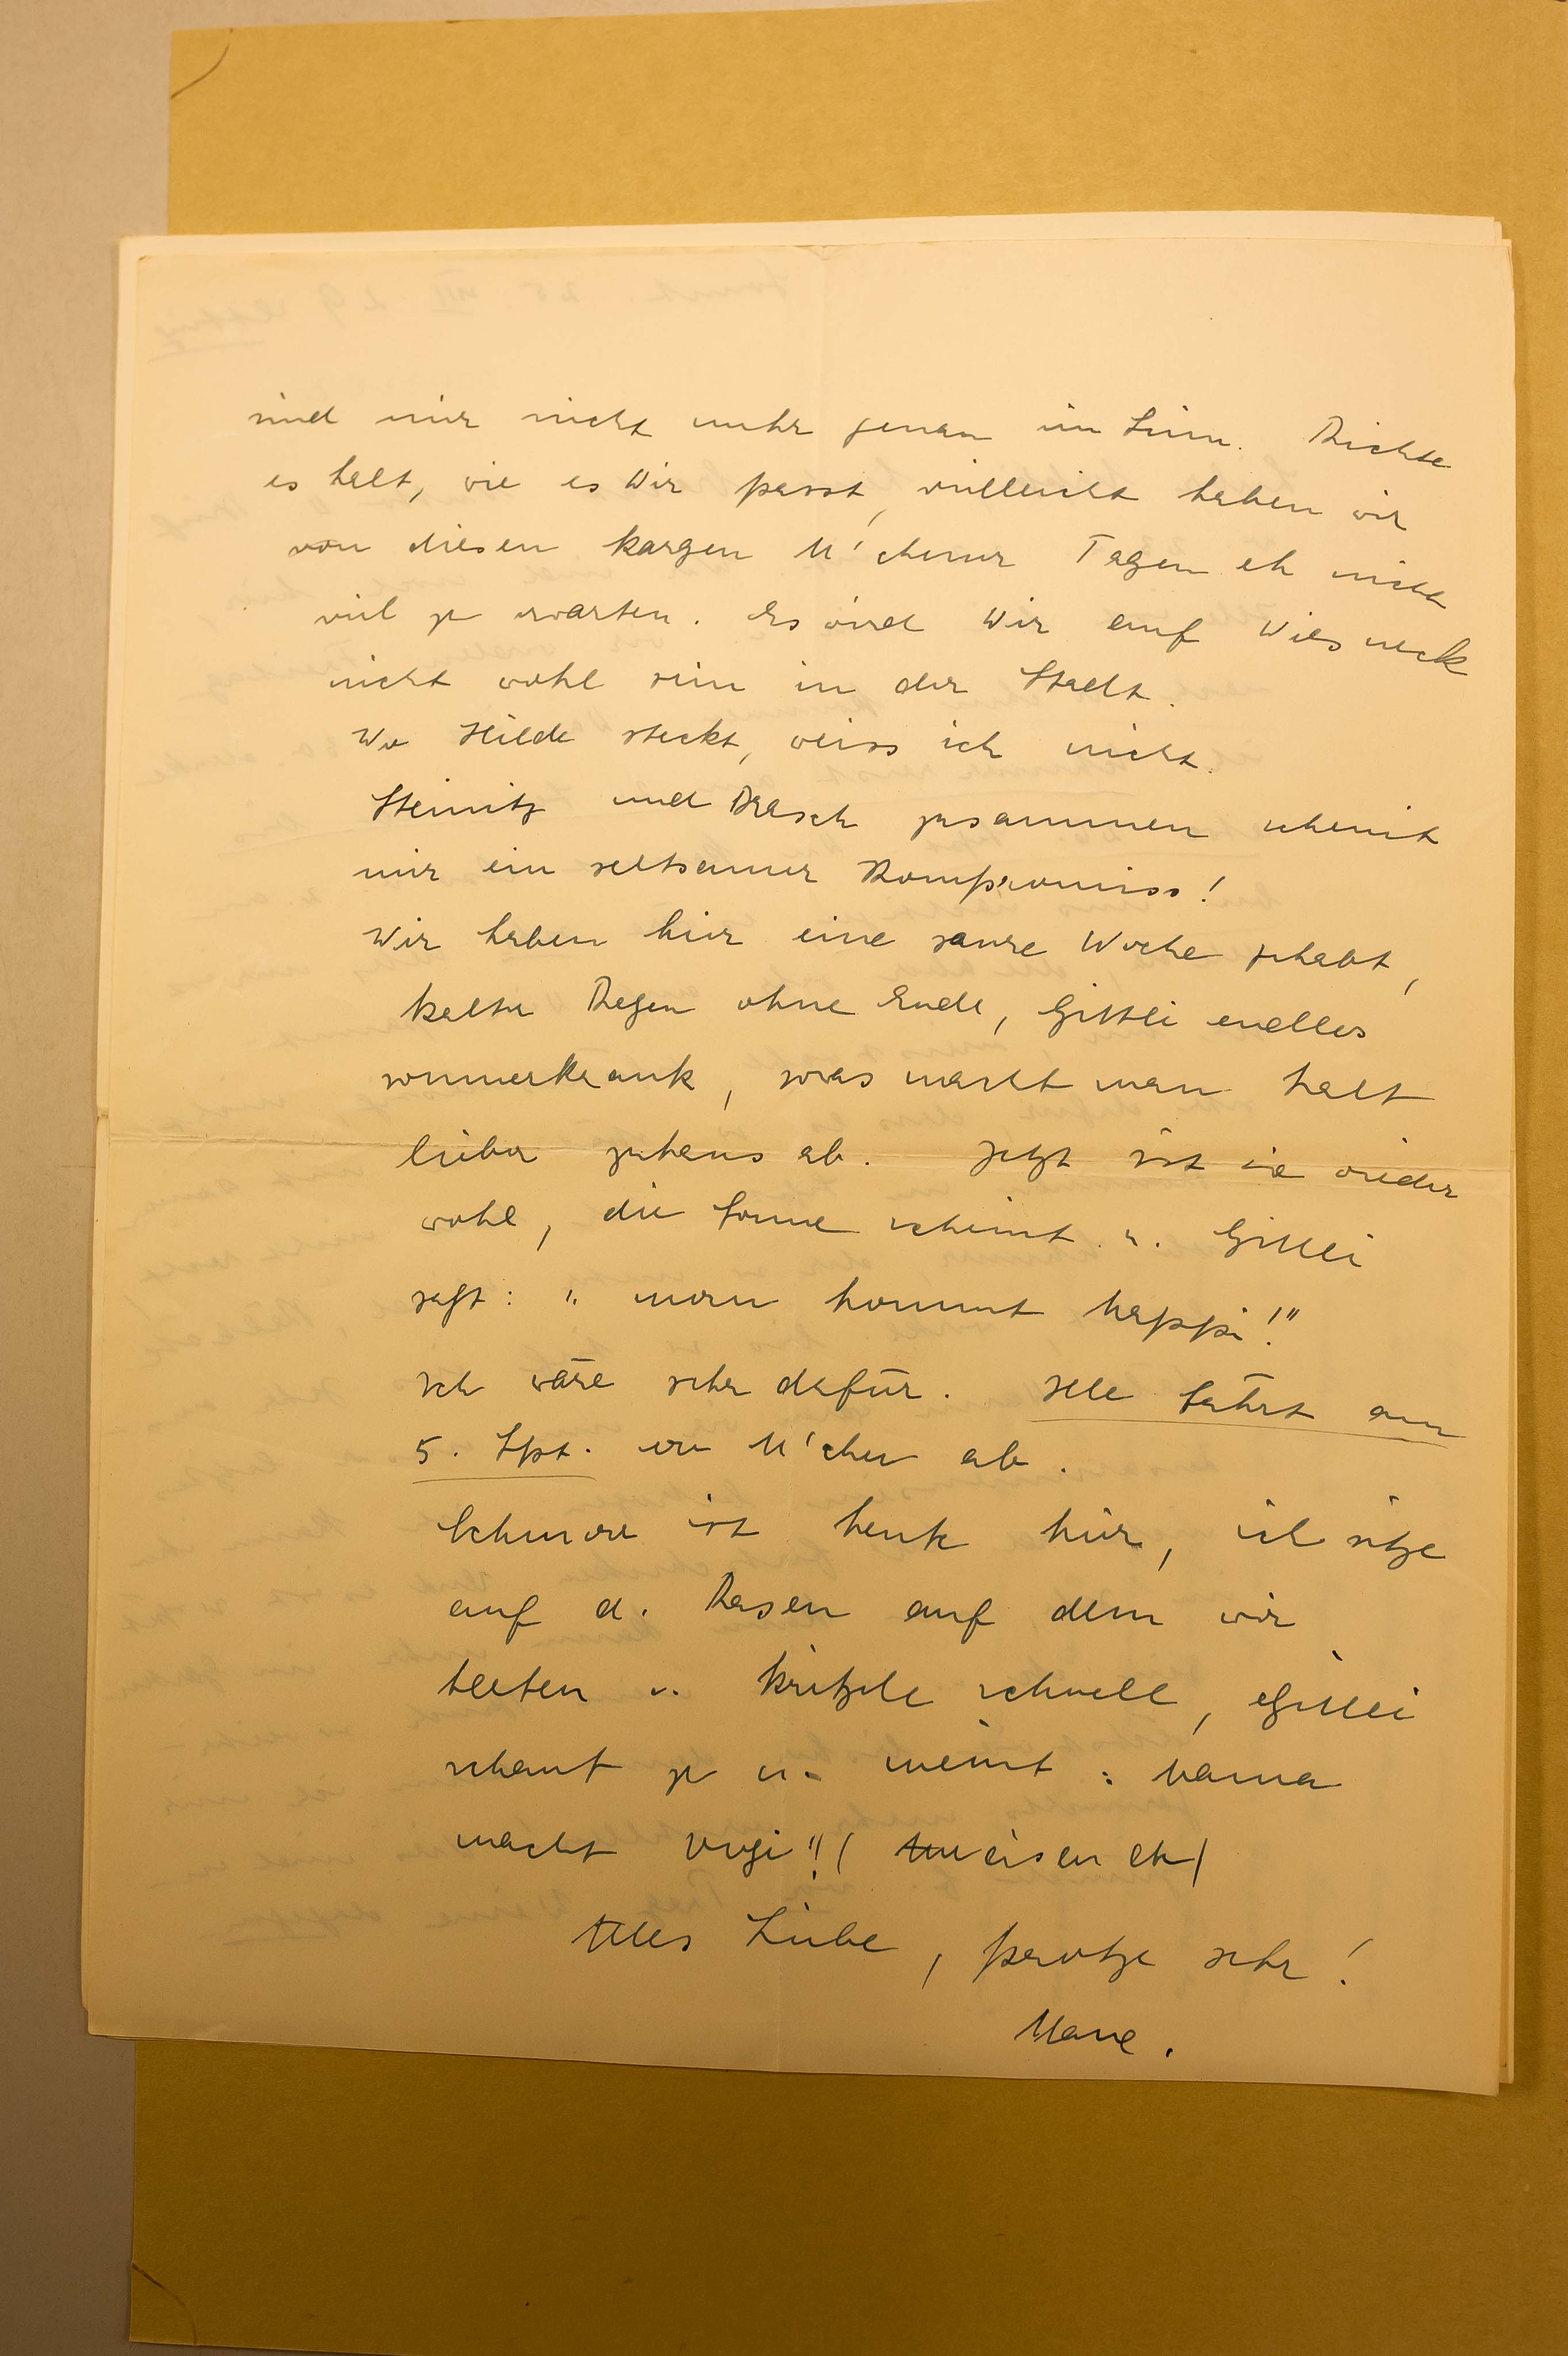 sind mir nicht mehr genau im Sinn. Richte
es halt, wie es Dir passt, vielleicht haben wir
von diesen kargen M'chener Tagen eh nicht
viel zu erwarten. Es wird Dir auf Wiesneck
nicht wohl sein in der Stadt.
Wo Hilde steckt, weiss ich nicht.
Steinitz und Rasch zusammen scheint
mir ein seltsamer Kompromiss!
Wir haben hier eine saure Woche gehabt,
kalter Regen ohne Ende, Gittli
sommerkrank, sowas macht man halt
lieber zuhaus ab. Jetzt ist sie wieder
wohl, die Sonne scheint u. Gittli
sagt: "morn kommt happi!"
Ich wäre sehr dafür. Ile fährt am
5. Spt. in M'chen ab.
ist heute hier, ich sitze
auf d. Rasen auf dem wir
u. kritzle schnell, Gittli
schaut zu u. meint: Mama
macht Vugi"! (Ameisen eh)
Alles Liebe, protze sehr!